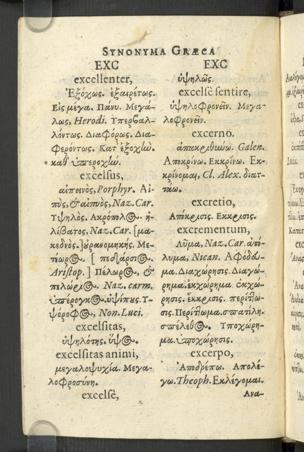 SYNONYMA GRÆCA
EXC
excellenter,
Ἐξόχως. ἐξαιρέτως.
Εἰς μέγα. Πάνυ. Μεγά-
λως, Herodi. Ὑπερβαλ-
λόντως. Διαφόρως. Δια-
φερόντως. Κατ' ἐξοχὼ.
καθ' ὑπεροχὼ.
excelsus,
αἰπεινὸς, Porphyr. Αἰ-
πὺς, & αἰπὸς, Naz. Car.
Ὑψηλός. Ἀκρόπολ . ἠ-
λίβατος, Naz. Car. [μα-
κεδνός.] οὐρανομηκής. Με-
τέωρος. [ πεδάρσιος.
Aristop. ] Πέλωρος, &
πελώριος, Naz. carm.
ὑπέρογκος. ὑψίπυς. Ὑ-
ψόροφος, Non. Luci.
excelsitas,
ὑψηλότης. ὕψος.
excelsitas animi,
μεγαλοψυχία. Μεγα-
λοφροσύνη.
excelsè,
EXC
ὑψηλῶς.
excelsè sentire,
ὑψηλοφρονεῖν. Μεγα-
λοφρονεῖν.
excerno.
Galen.
Ἀποκρίνω. Ἐκκρίνω. Ἐκ-
κρίνομαι, Cl. Alex. διατ-
τάω.
excretio,
Ἀπόκρισις. Ἔκκρισις.
excrementum,
Λῦμα, Naz. Car. ἀπό-
λυμα, Nican. Ἀφόδευ-
μα. Διαχώρησις. Διαχώ-
ρημα. ἐκχώρημα. ἐκχώ-
ρησις. ἔκκρισις. περίττω-
σις. Περίττωμα. σπατίλη.
σπέλεθος. Ὑποχώρη-
μα. ὑποχώρησις.
excerpo,
Ἀποδρέπω. Ἀπολέ-
γω. Theoph. Ἐκλέγομαι.
Ἀνα-